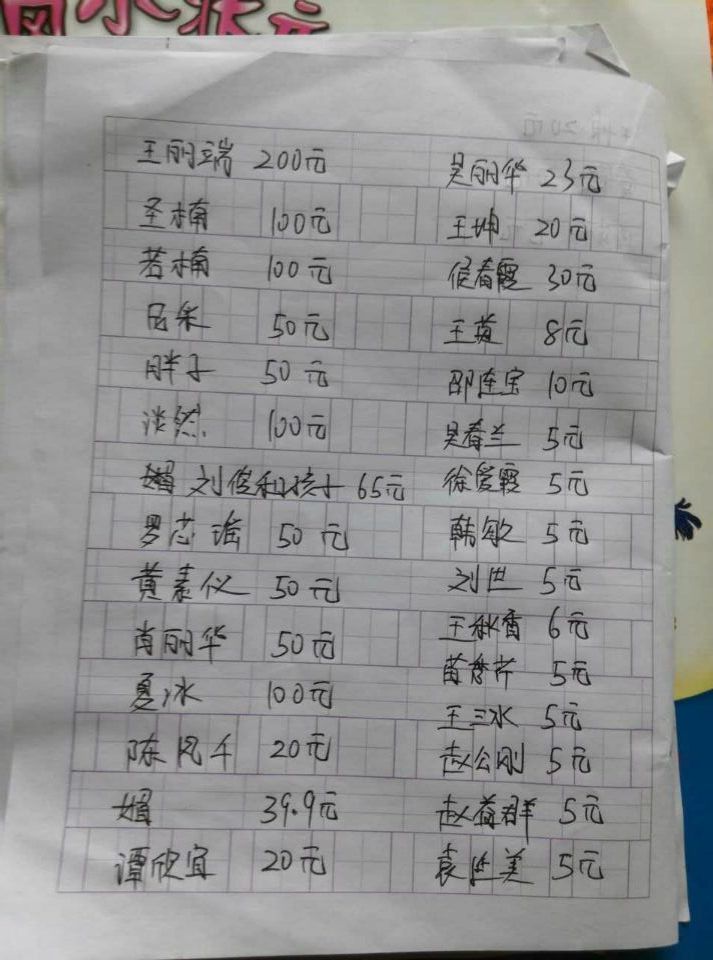 王丽端 200元
圣楠 100元
若楠 100元
50元
胖子 50元
淡然 100元
刘俊和孩子 65元
罗芯 50元
黄素仪 50元
肖丽华 50元
夏冰 100元
陈凤千 20元
娟 39.9元
谭欣宜 20元
吴丽华 23元
王坤 20元
侯春霞 30元
王英 8元
邵连宝 10元
吴春兰 5元
徐爱霞 5元
韩敏 5元
刘世 5元
王秋香 6元
苗彦芹 5元
王三水 5元
赵公刚 5元
赵益群 5元
袁进美 5元